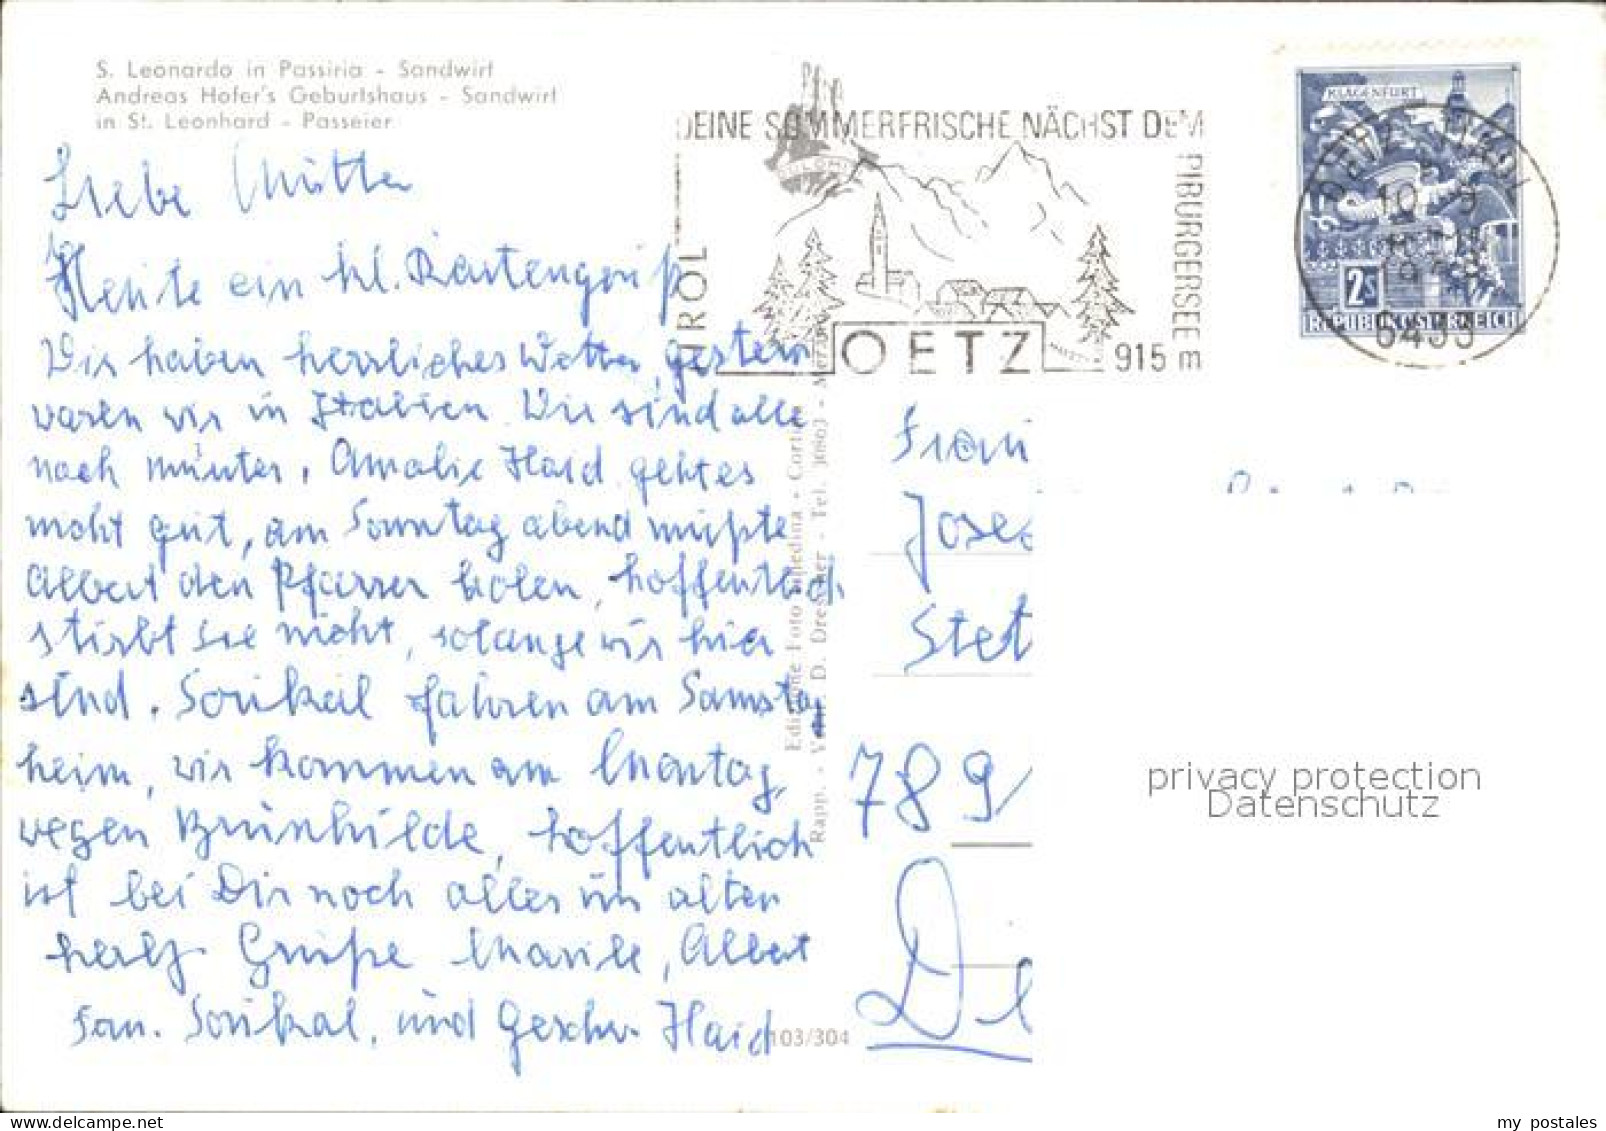 S. Leonardo in Passiria - Sandwirt
Andreas Hofer's Geburtshaus - Sandwirt
in St. Leonhard - Passeier
DEINE SOMMERFRISCHE NÄCHST DEM
PIBURGERSEE
TIROL
OETZ
915 m
KLAGENFURT
2S
REPUBLIK ÖSTERREICH
OETZ TIROL
10. 9
6433
Liebe Mutter
Heute ein kl. Kartengruß
Wir haben herrliches Wetter, gestern
waren wir in Italien. Wir sind alle
noch munter. Amalie Haid geht es
nicht gut, am Sonntag abend mußte
Albert den Pfarrer holen, hoffentlich
stirbt sie nicht, solange wir hier
sind. fahren am Samstag
heim, wir kommen am Montag,
wegen Brunhilde, hoffentlich
ist bei Dir noch alles im alten
herlz. Grüße Marile, Albert
Fam. und Geschw. Haid
Edizione Foto Ghedina - Cortina
Rapp. - Vertr. D. Drescher - Tel. - Meran
103/304
Frau
Jose
Stet
789
privacy protection
Datenschutz
my postales